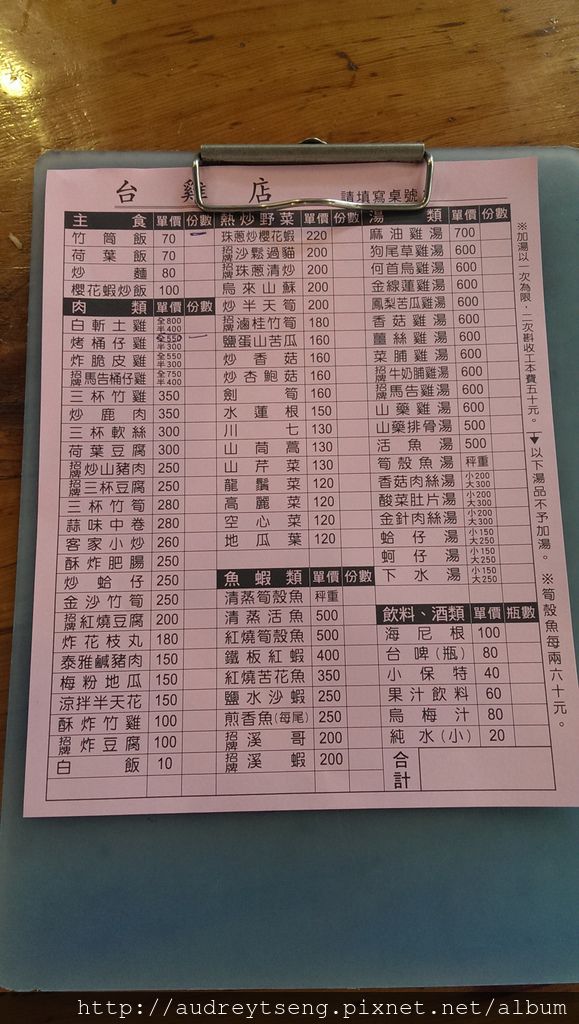 台雞店 請填寫桌號
主食 單價 份數
竹筒飯 70 一
荷葉飯 70
炒麵 80
櫻花蝦炒飯 100
肉類 單價 份數
白斬土雞 全800 半400
烤桶仔雞 全550 半300 一
炸脆皮雞 全550 半300
招牌 馬告桶仔雞 全750 半400
三杯竹雞 350
炒鹿肉 350
三杯軟絲 300
荷葉豆腐 300
招牌 炒山豬肉 250
招牌 三杯豆腐 250
三杯竹筍 280
蒜味中卷 280
客家小炒 260
酥炸肥腸 250
炒蛤仔 250
金沙竹筍 250
招牌 紅燒豆腐 200
炸花枝丸 180
泰雅鹹豬肉 150
梅粉地瓜 150
涼拌半天花 150
酥炸竹雞 100
招牌 炸豆腐 100
白飯 10
熱炒野菜 單價 份數
珠蔥炒櫻花蝦 220
招牌 沙鬆過貓 200
招牌 珠蔥清炒 200
烏來山蘇 200
炒半天筍 200
招牌 滷桂竹筍 180
鹽蛋山苦瓜 160
炒香菇 160
炒杏鮑菇 160
劍筍 160
水蓮根 150
川七 130
山茼蒿 130
山芹菜 130
龍鬚菜 120
高麗菜 120
空心菜 120
地瓜葉 120
魚蝦類 單價 份數
清蒸筍殼魚 秤重
清蒸活魚 500
紅燒筍殼魚 500
鐵板紅蝦 400
紅燒苦花魚 350
鹽水沙蝦 250
煎香魚(每尾) 250
招牌 溪哥 200
招牌 溪蝦 200
湯類 單價 份數
麻油雞湯 700
狗尾草雞湯 600
何首烏雞湯 600
金線蓮雞湯 600
鳳梨苦瓜雞湯 600
香菇雞湯 600
薑絲雞湯 600
菜脯雞湯 600
招牌 牛奶脯雞湯 600
招牌 馬告雞湯 600
山藥雞湯 600
山藥排骨湯 500
活魚湯 500
筍殼魚湯 秤重
香菇肉絲湯 小200 大300
酸菜肚片湯 小200 大300
金針肉絲湯 小200 大300
蛤仔湯 小150 大250
蚵仔湯 小150 大250
下水湯 小150 大250
飲料、酒類 單價 瓶數
海尼根 100
台啤(瓶) 80
小保特 40
果汁飲料 60
烏梅汁 80
純水(小) 20
合計
※加湯以 次為限,二次斟收工本費五十元。
▼以下湯品不予加湯。
※筍殼魚每兩六十元。
http://audreytseng.pixnet.net/album